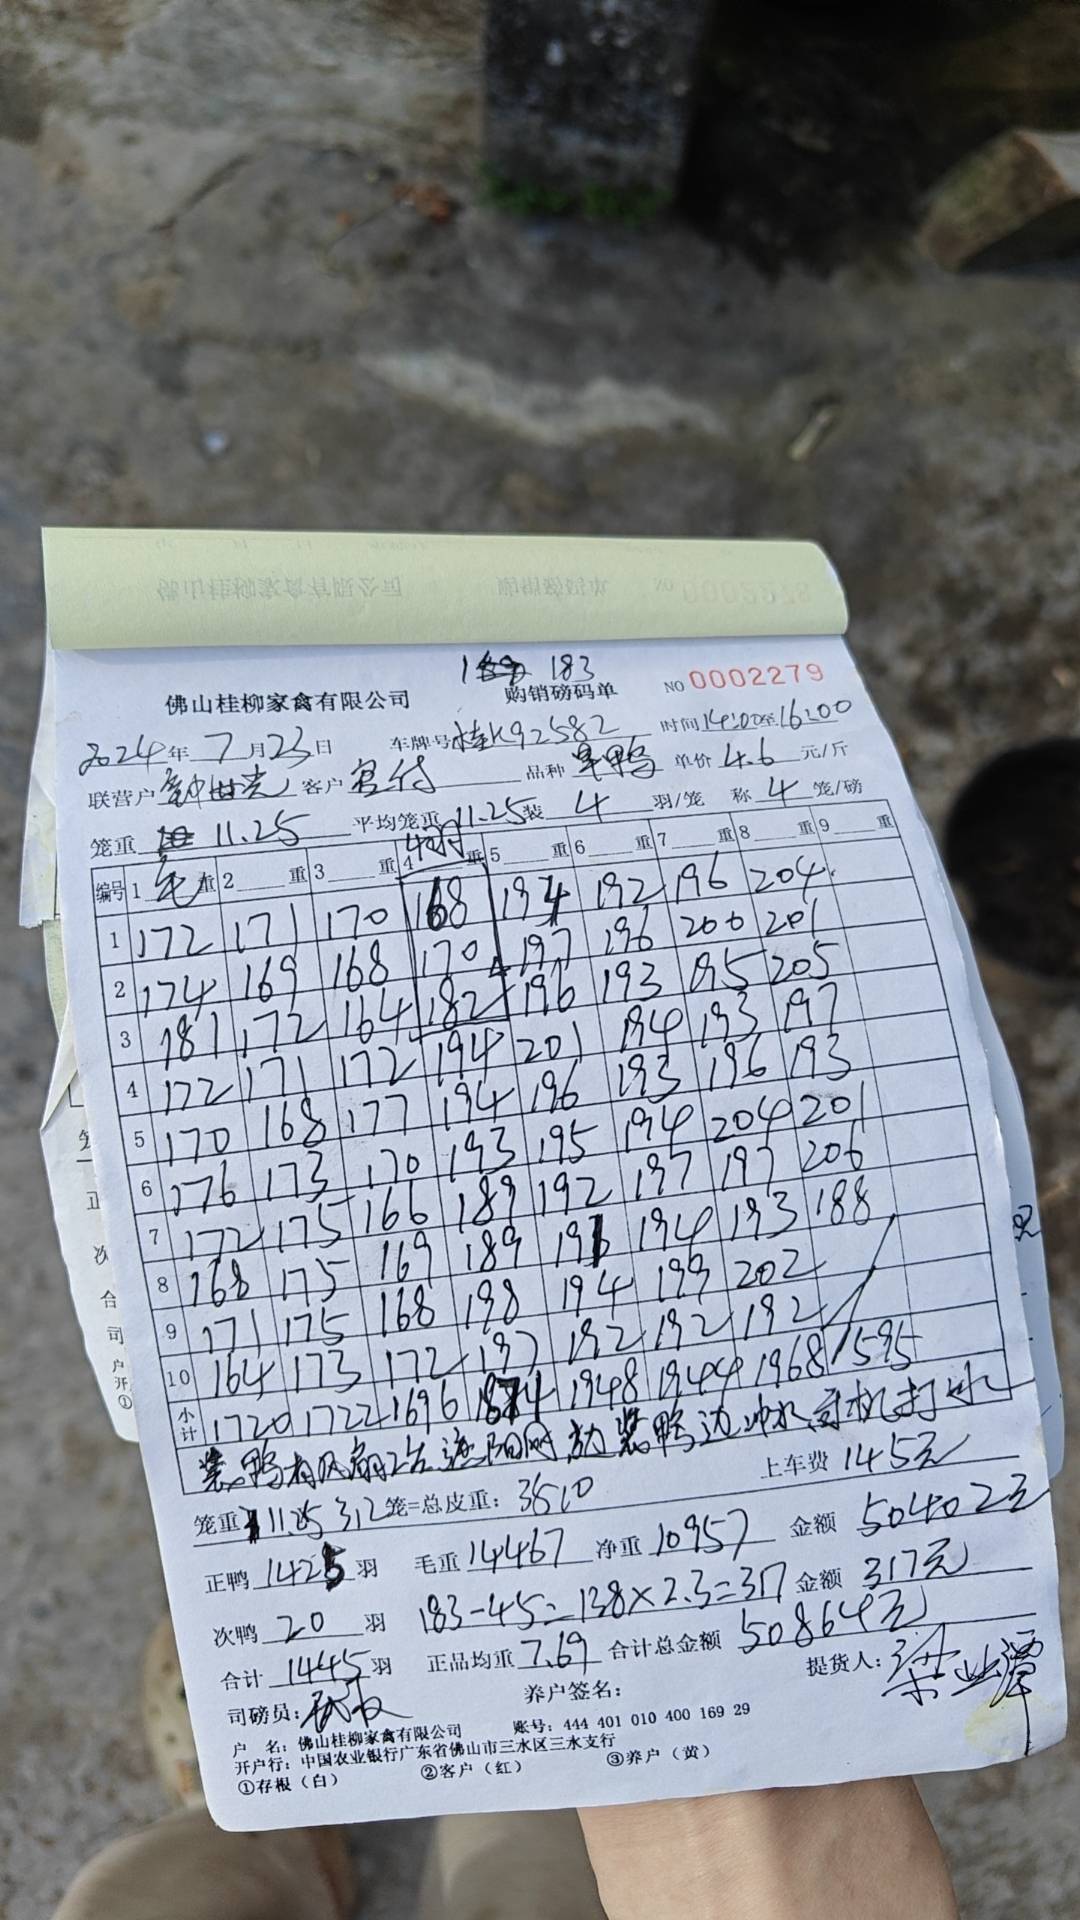 183
佛山桂柳家禽有限公司 购销磅码单 NO 0002279
2024年7月23日 车牌号桂K92582 时间14:00至16:00
联营户 客户 品种 单价 4.6 元/斤
笼重 11.25 平均笼重 11.25 装 4 羽/笼 称 4 笼/磅
编号 1 毛重 2 重 3 重 4 重 5 重 6 重 7 重 8 重 9 重
1 172 171 170 168 194 192 196 204
2 174 169 168 170 197 196 200 201
3 181 172 164 182 196 193 195 205
4 172 171 172 194 201 194 193 197
5 170 168 177 194 196 193 196 193
6 176 173 170 193 195 194 204 201
7 172 175 166 189 192 197 197 206
8 168 175 169 189 191 194 193 188
9 171 175 168 198 194 199 202
10 164 173 172 197 192 192 192
小计 1720 1722 1696 1874 1948 1944 1968 1595
装鸭有风扇 遮阳网 装鸭边冲水司机打水
上车费 145元
笼重 11.25 312 笼=总皮重: 3510
正鸭 1425 羽 毛重 14467 净重 10957 金额 50402元
次鸭 20 羽 183-45=138×2.3=317 金额 317元
合计 1445 羽 正品均重 7.69 合计总金额 50864元
司磅员: 养户签名: 提货人:
户 名: 佛山桂柳家禽有限公司 账号: 444 401 010 400 169 29
开户行: 中国农业银行广东省佛山市三水区三水支行
①存根（白） ②客户（红） ③养户（黄）